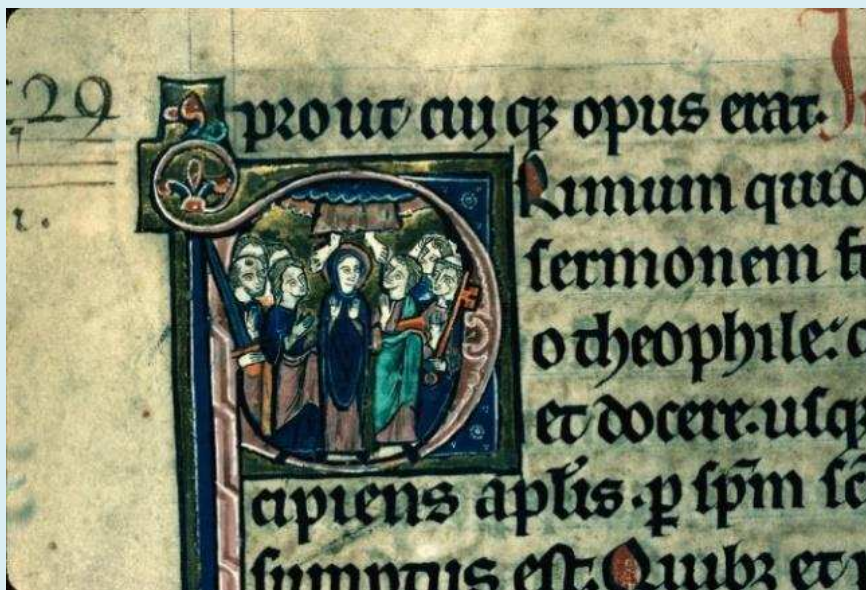 29
prout cuiqꝫ opus erat.
Rimum quid
sermonem
o theophile:
et docere. usqꝫ
cipiens apl̅is. ꝑ sp̅m
sumptus est. Quibꝫ et